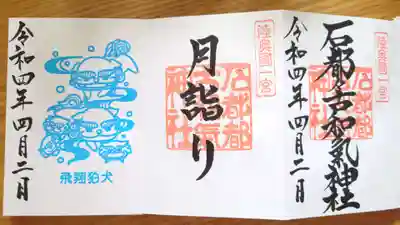 陸奥国一宮
石都々古和氣神社
石都都
古和氣
神社
令和四年四月二日
陸奥国一宮
月詣り
石都都
古和氣
神社
飛翔狛犬
令和四年四月二日